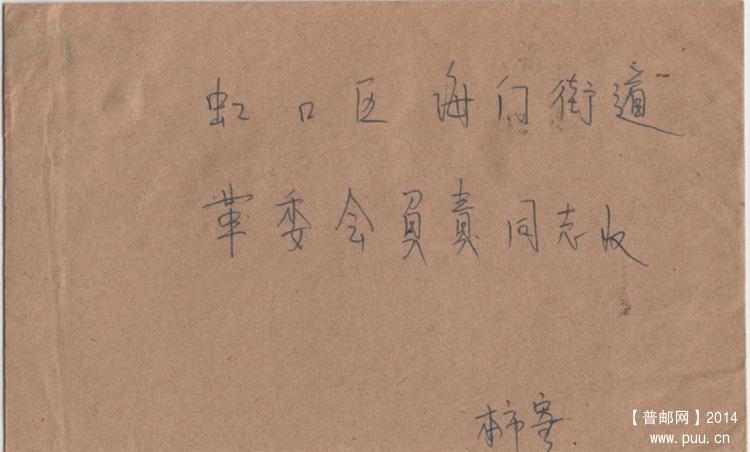 虹口区海门街道
革委会负责同志收
本市寄
【普邮网】2014
www.puu.cn